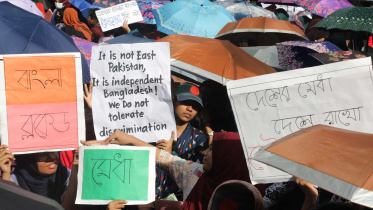 It is not East
Pakistan,
It is independent
Bangladesh!
We Do not
tolerate
discrimination
বাংলা
ব্লকেড
মেধা
দেশের মেধা
দেশে রাখো